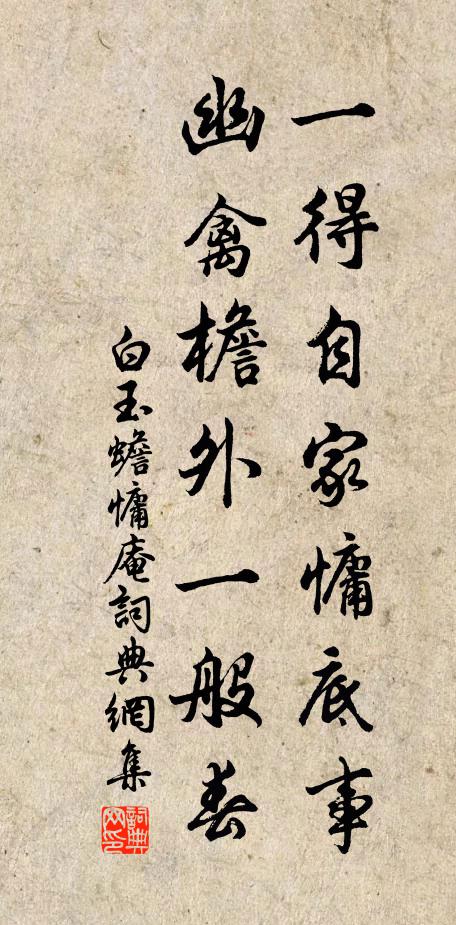 一得自家慵底事
幽禽檐外一般春
白玉蟾慵庵詞典網集
詞典网印